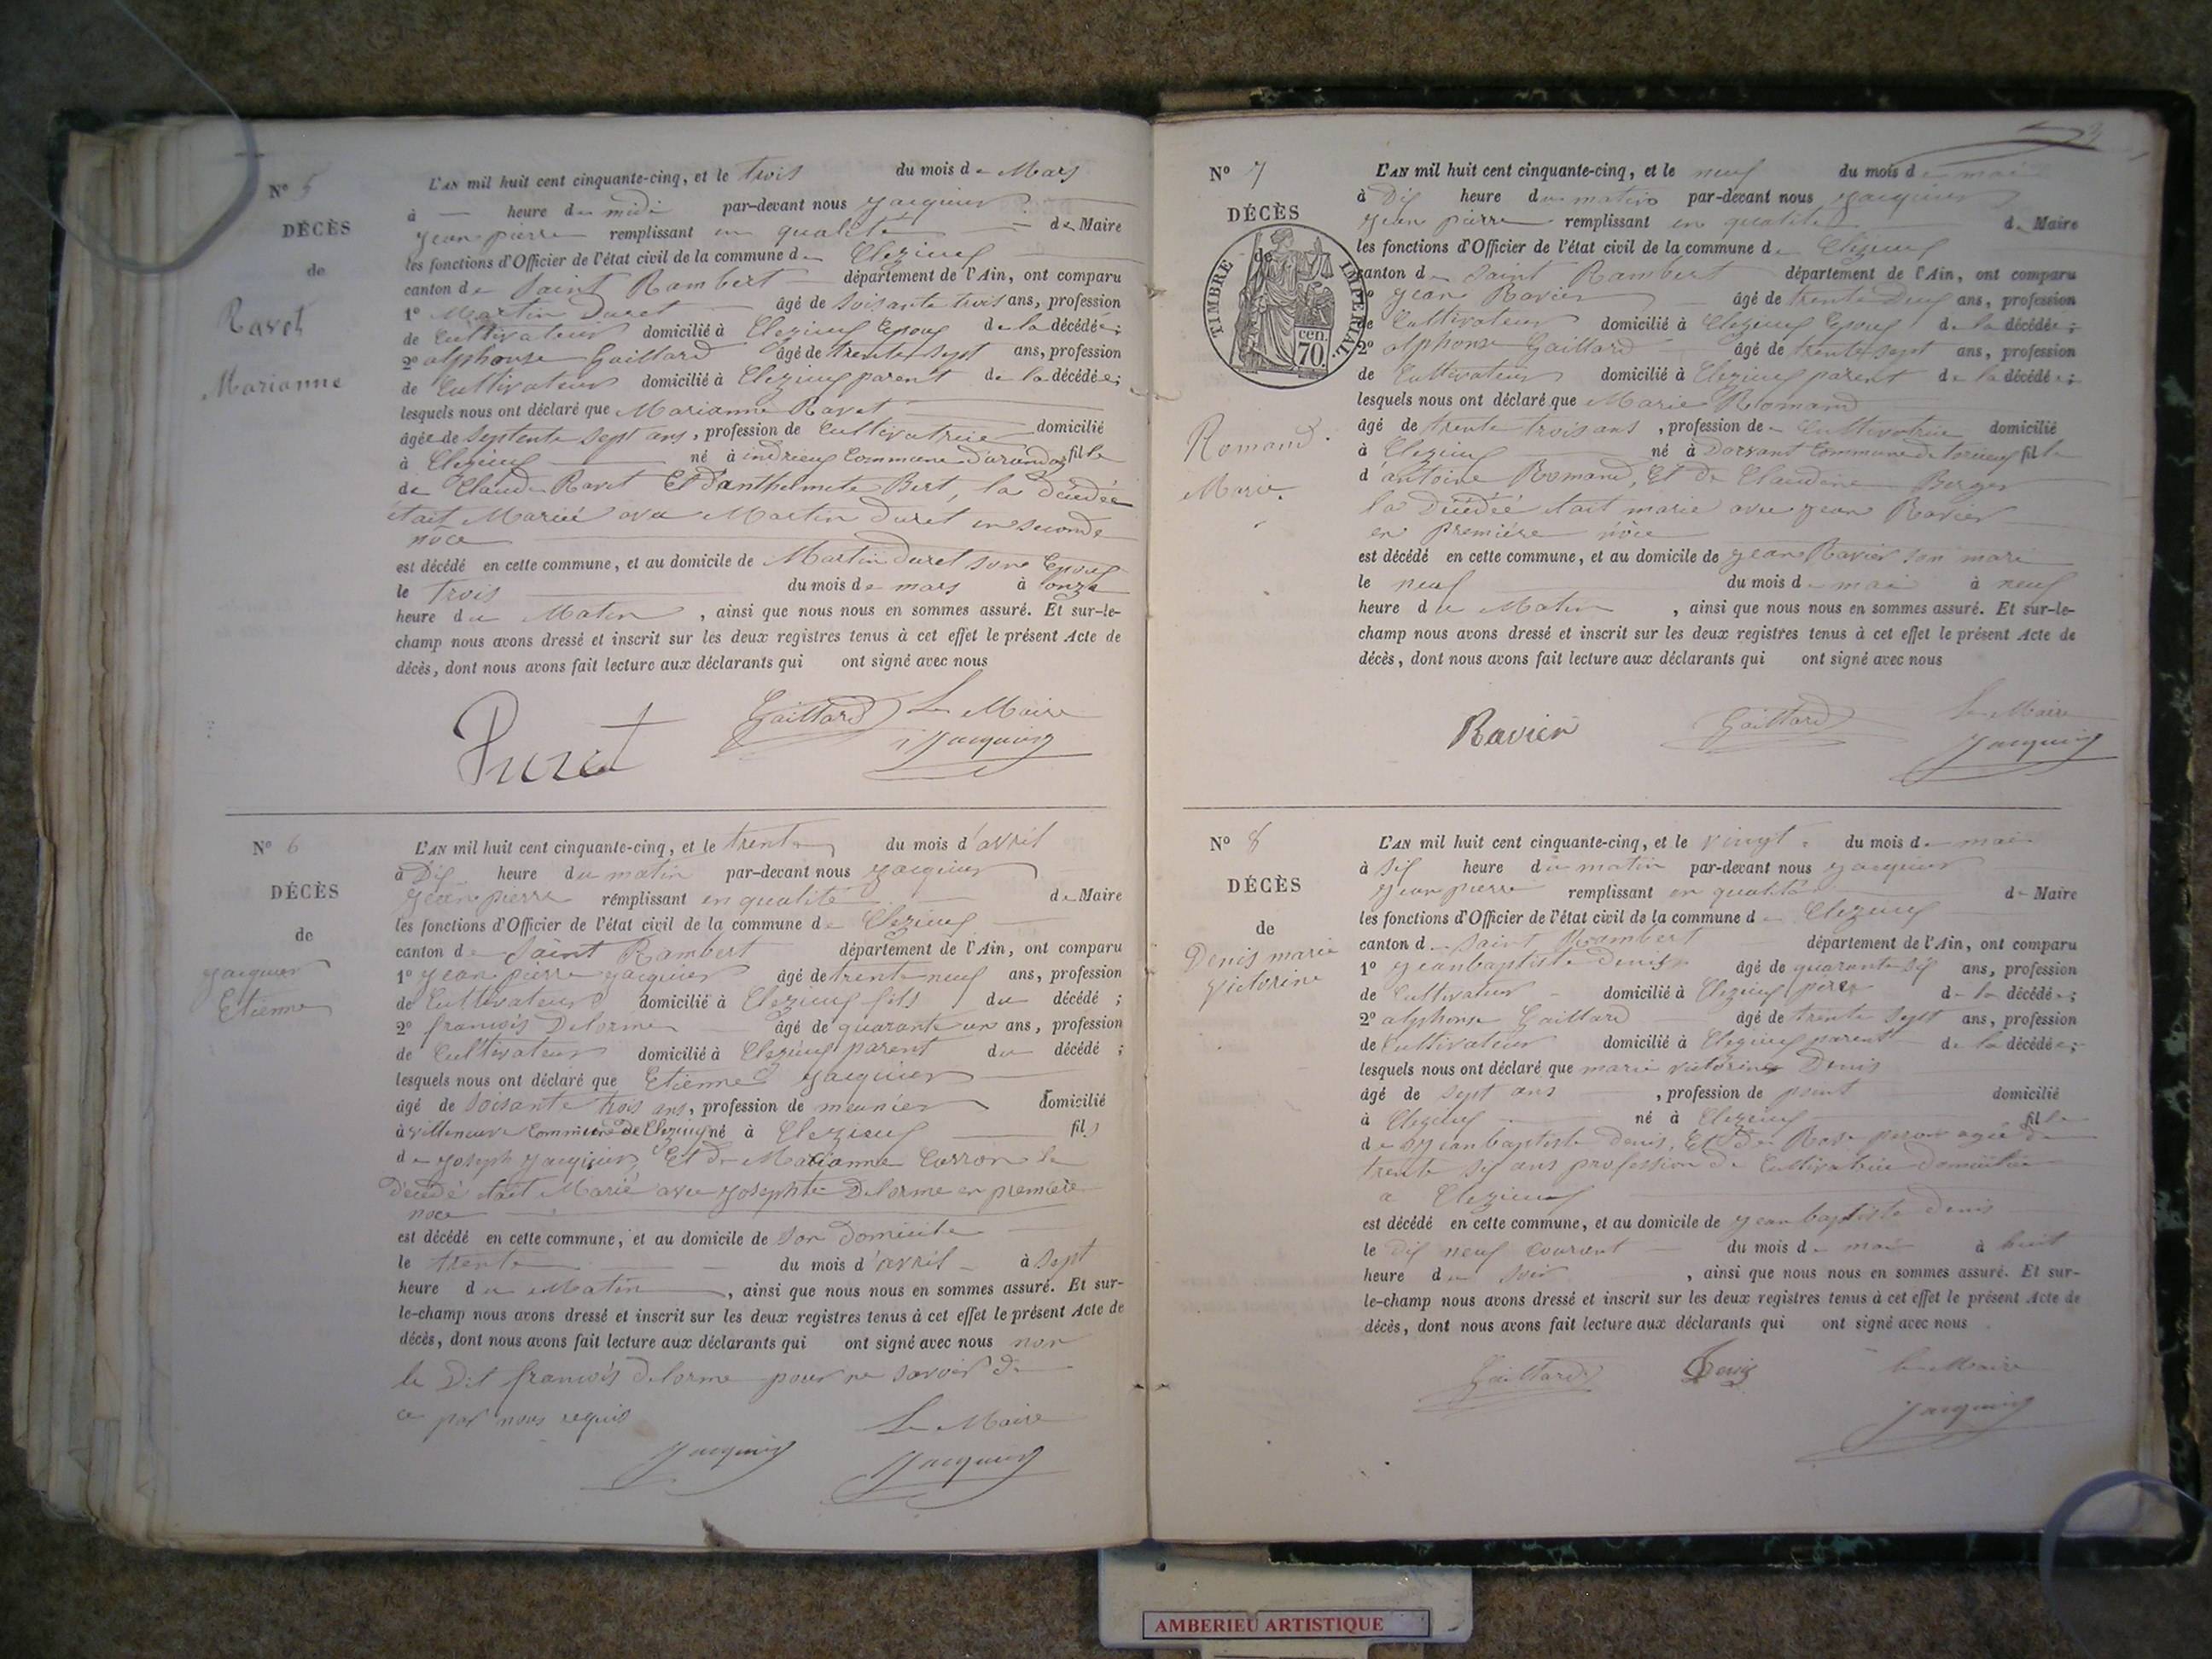 N° 5
DÉCÈS
de
Ravet
Marianne
L'AN mil huit cent cinquante-cinq, et le trois du mois de Mars
à heure du midi par-devant nous Jacquier
Jean pierre remplissant en qualité de Maire
les fonctions d'Officier de l'état civil de la commune de Clezieux
canton de Saint Rambert département de l'Ain, ont comparu
1° Martin Duret âgé de soisante trois ans, profession
de Cultivateur domicilié à Clezieux Epoux de la décédée;
2° alphonse Gaillard âgé de trente sept ans, profession
de Cultivateur domicilié à Clezieux parent de la décédée;
lesquels nous ont déclaré que Marianne Ravet
âgée de septente sept ans, profession de Cultivatrice domicilié
à Clezieux né à indrieux Commune d'arandas fille
de Claude Ravet Et D'anthelmette Bert, la décédée
était Mariée avec Martin Duret en seconde
noce
est décédé en cette commune, et au domicile de Martin Duret son Epoux
le trois du mois de mars à onze
heure du Matin, ainsi que nous nous en sommes assuré. Et sur-le-
champ nous avons dressé et inscrit sur les deux registres tenus à cet effet le présent Acte de
décès, dont nous avons fait lecture aux déclarants qui ont signé avec nous
Duret Gaillard Le Maire
Jacquier
N° 6
DÉCÈS
de
Jacquier
Etienne
L'AN mil huit cent cinquante-cinq, et le trente du mois d'avril
à Dix heure du matin par-devant nous Jacquier
Jean pierre remplissant en qualité de Maire
les fonctions d'Officier de l'état civil de la commune de Clezieux
canton de Saint Rambert département de l'Ain, ont comparu
1° Jean pierre Jacquier âgé de trente neuf ans, profession
de Cultivateur domicilié à Clezieux fils du décédé;
2° francois Delorme âgé de quarante un ans, profession
de Cultivateur domicilié à Clezieux parent du décédé;
lesquels nous ont déclaré que Etienne Jacquier
âgé de soisante trois ans, profession de meunier domicilié
à villeneuve Commune de Clezieux né à Clezieux fils
de Joseph Jacquier, Et De Marianne Carron le
Décédé était Marié avec Josephte Delorme en première
noce
est décédé en cette commune, et au domicile de son domicile
le trente du mois d'avril à sept
heure du Matin, ainsi que nous nous en sommes assuré. Et sur-
le-champ nous avons dressé et inscrit sur les deux registres tenus à cet effet le présent Acte de
décès, dont nous avons fait lecture aux déclarants qui ont signé avec nous non
le Dit francois Delorme pour ne savoir De
ce par nous requis
Le Maire
Jacquier Jacquier
N° 7
DÉCÈS
de
TIMBRE IMPERIAL
70 cen.
Romand
Marie
L'AN mil huit cent cinquante-cinq, et le neuf du mois de mai
à Dix heure du matin par-devant nous Jacquier
Jean pierre remplissant en qualité de Maire
les fonctions d'Officier de l'état civil de la commune de Clezieux
canton de Saint Rambert département de l'Ain, ont comparu
1° Jean Ravier âgé de trente Deux ans, profession
de Cultivateur domicilié à Clezieux Epoux de la décédée;
2° alphonse Gaillard âgé de trente sept ans, profession
de Cultivateur domicilié à Clezieux parent de la décédée;
lesquels nous ont déclaré que Marie Romand
âgé de trente trois ans, profession de Cultivatrice domicilié
à Clezieux né à Dorvant Commune de torcieux fille
d'antoine Romand, Et De Claudine Berger
la Décédée était marie avec Jean Ravier
en première nôce
est décédé en cette commune, et au domicile de Jean Ravier son mari
le neuf du mois de mai à neuf
heure du Matin, ainsi que nous nous en sommes assuré. Et sur-le-
champ nous avons dressé et inscrit sur les deux registres tenus à cet effet le présent Acte de
décès, dont nous avons fait lecture aux déclarants qui ont signé avec nous
Ravier Gaillard Le Maire
Jacquier
N° 8
DÉCÈS
de
Denis marie
Victorine
L'AN mil huit cent cinquante-cinq, et le vingt du mois de mai
à six heure du matin par-devant nous Jacquier
Jean pierre remplissant en qualité de Maire
les fonctions d'Officier de l'état civil de la commune de Clezieux
canton de Saint Rambert département de l'Ain, ont comparu
1° Jean baptiste Denis âgé de quarante six ans, profession
de Cultivateur domicilié à Clezieux père de la décédée;
2° alphonse Gaillard âgé de trente sept ans, profession
de Cultivateur domicilié à Clezieux parent de la décédée;
lesquels nous ont déclaré que marie victorine Denis
âgé de sept ans, profession de point domicilié
à Clezieux né à Clezieux fille
de Jean baptiste Denis, Et De Rose agée de
trente six ans profession de Cultivatrice domiciliée
a Clezieux
est décédé en cette commune, et au domicile de Jean baptiste Denis
le dix neuf courant du mois de mai à huit
heure du soir, ainsi que nous nous en sommes assuré. Et sur-
le-champ nous avons dressé et inscrit sur les deux registres tenus à cet effet le présent Acte de
décès, dont nous avons fait lecture aux déclarants qui ont signé avec nous
Gaillard Denis le Maire
Jacquier
AMBERIEU ARTISTIQUE